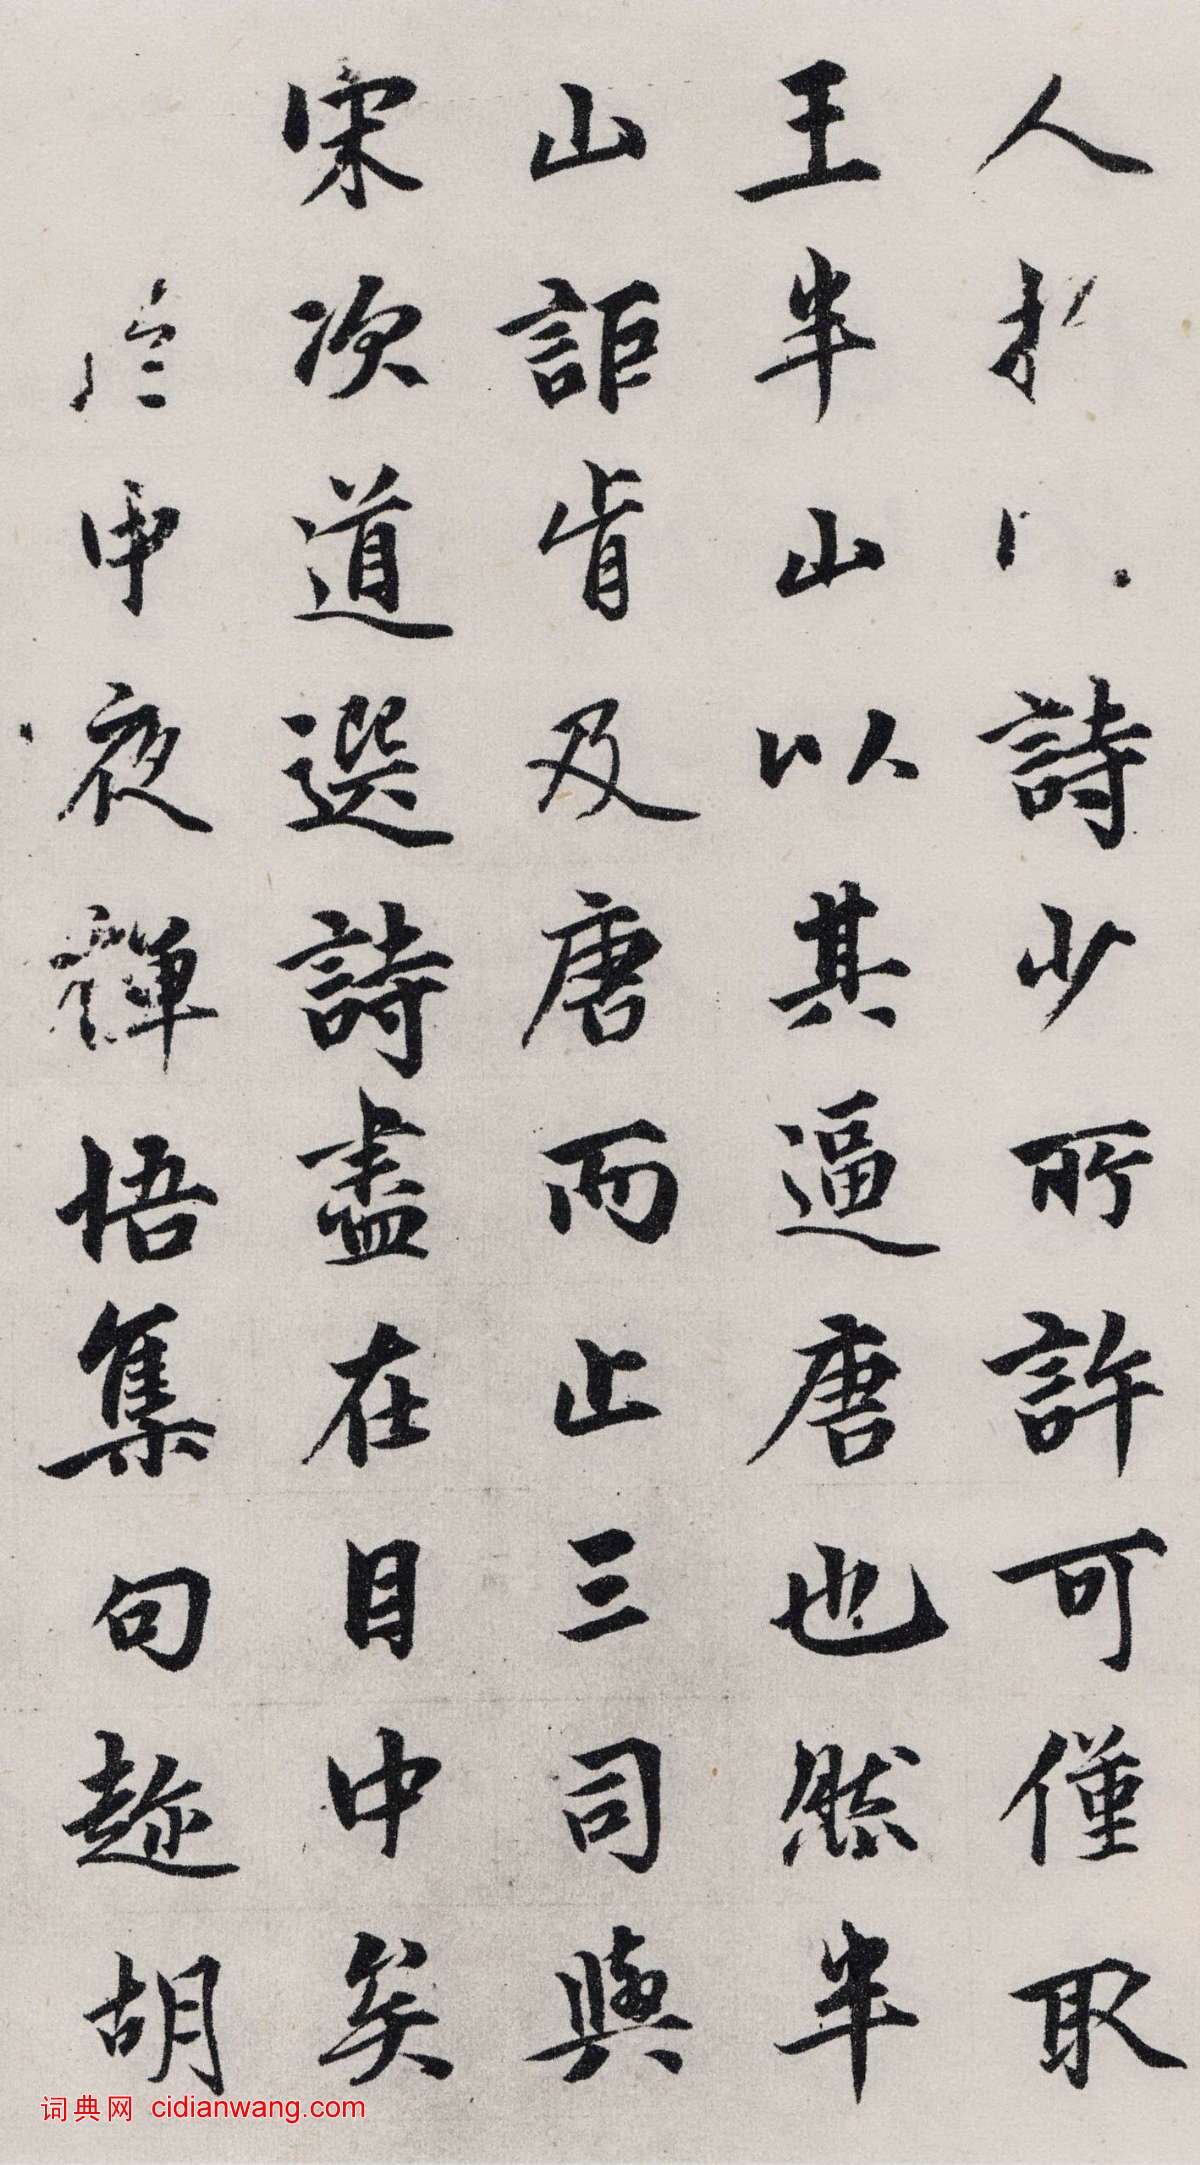 人於詩少所許可僅取
王半山以其逼唐也然半
山詎肯及唐而止三司與
宋次道選詩盡在目中矣
申夜禪悟集句趂胡
词典网 cidianwang.com